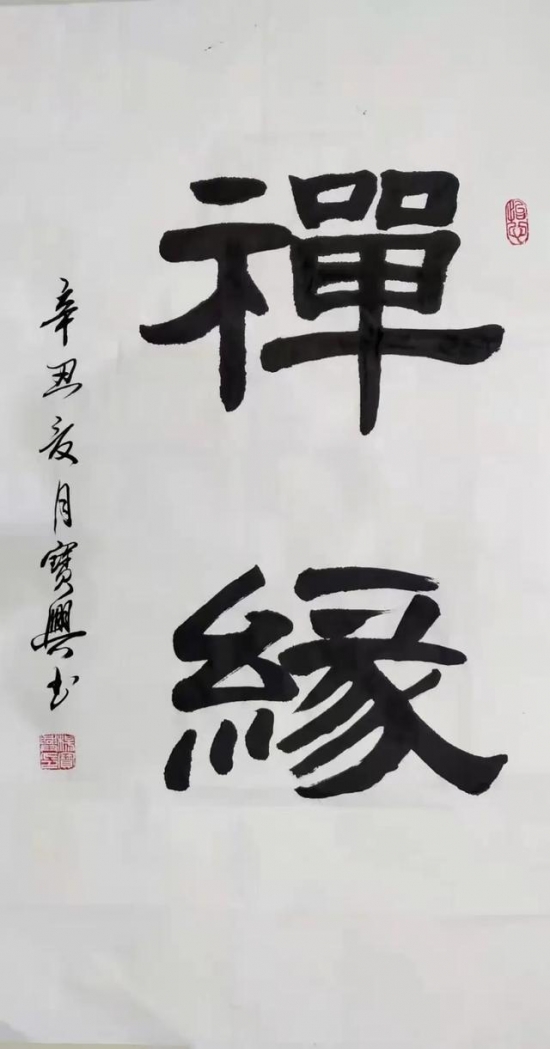 禪緣
辛丑亥月寶興书